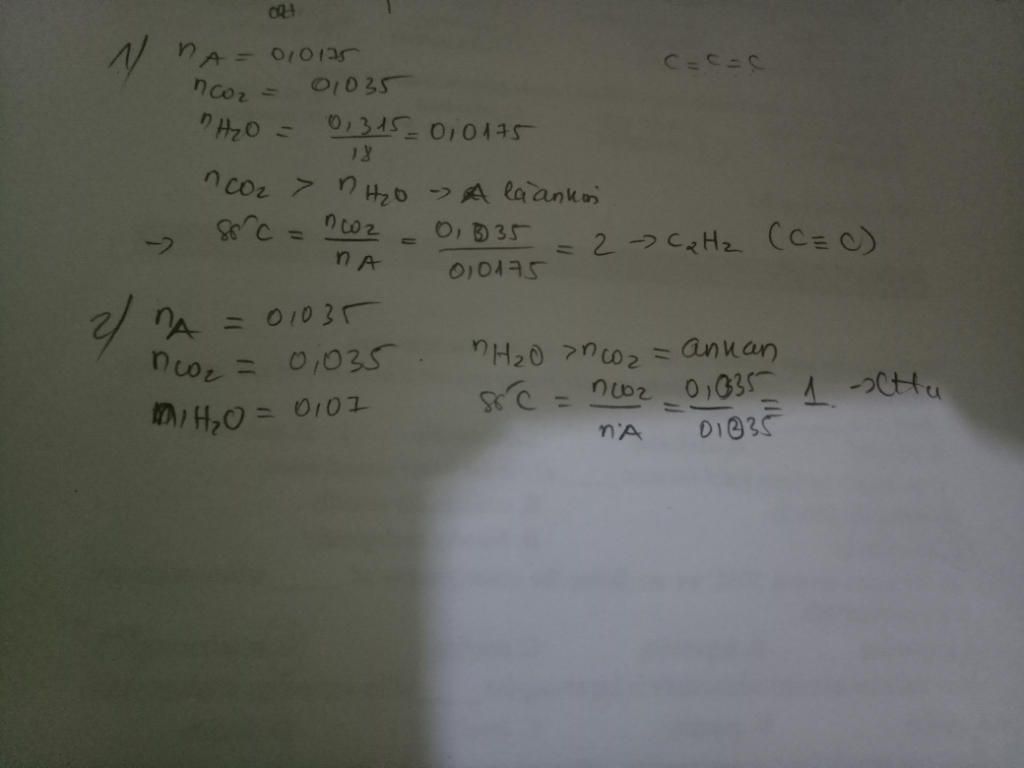 1) nA = 0,0175
C = C = C
nCO2 = 0,035
nH2O = 0,315/18 = 0,0175
nCO2 > nH2O → A là ankin
→ số C = nCO2/nA = 0,035/0,0175 = 2 → C2H2 (C≡C)
2) nA = 0,035
nCO2 = 0,035
nH2O = 0,07
nH2O > nCO2 = ankan
số C = nCO2/nA = 0,035/0,035 = 1 → CH4